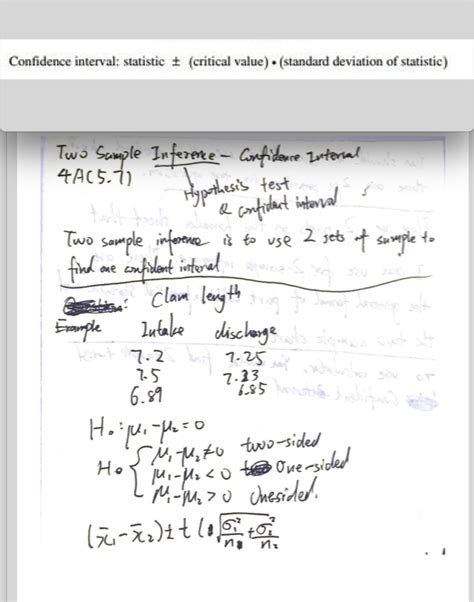 Confidence interval: statistic ± (critical value) • (standard deviation of statistic)
Two Sample Inference - Confidence Interval
4A(5.7)
Hypothesis test
& confident interval
Two sample inference is to use 2 sets of sample to
find one confident interval
: Clam length
Example Intake discharge
7.2 7.25
7.5 7.23
6.89 6.85
H₀: μ₁-μ₂=0
Hₐ { μ₁-μ₂≠0 two-sided
μ₁-μ₂<0 One-sided
μ₁-μ₂>0 Onesided.
(x̄₁-x̄₂)± t (√σ₁²/n₁ + σ₂²/n₂